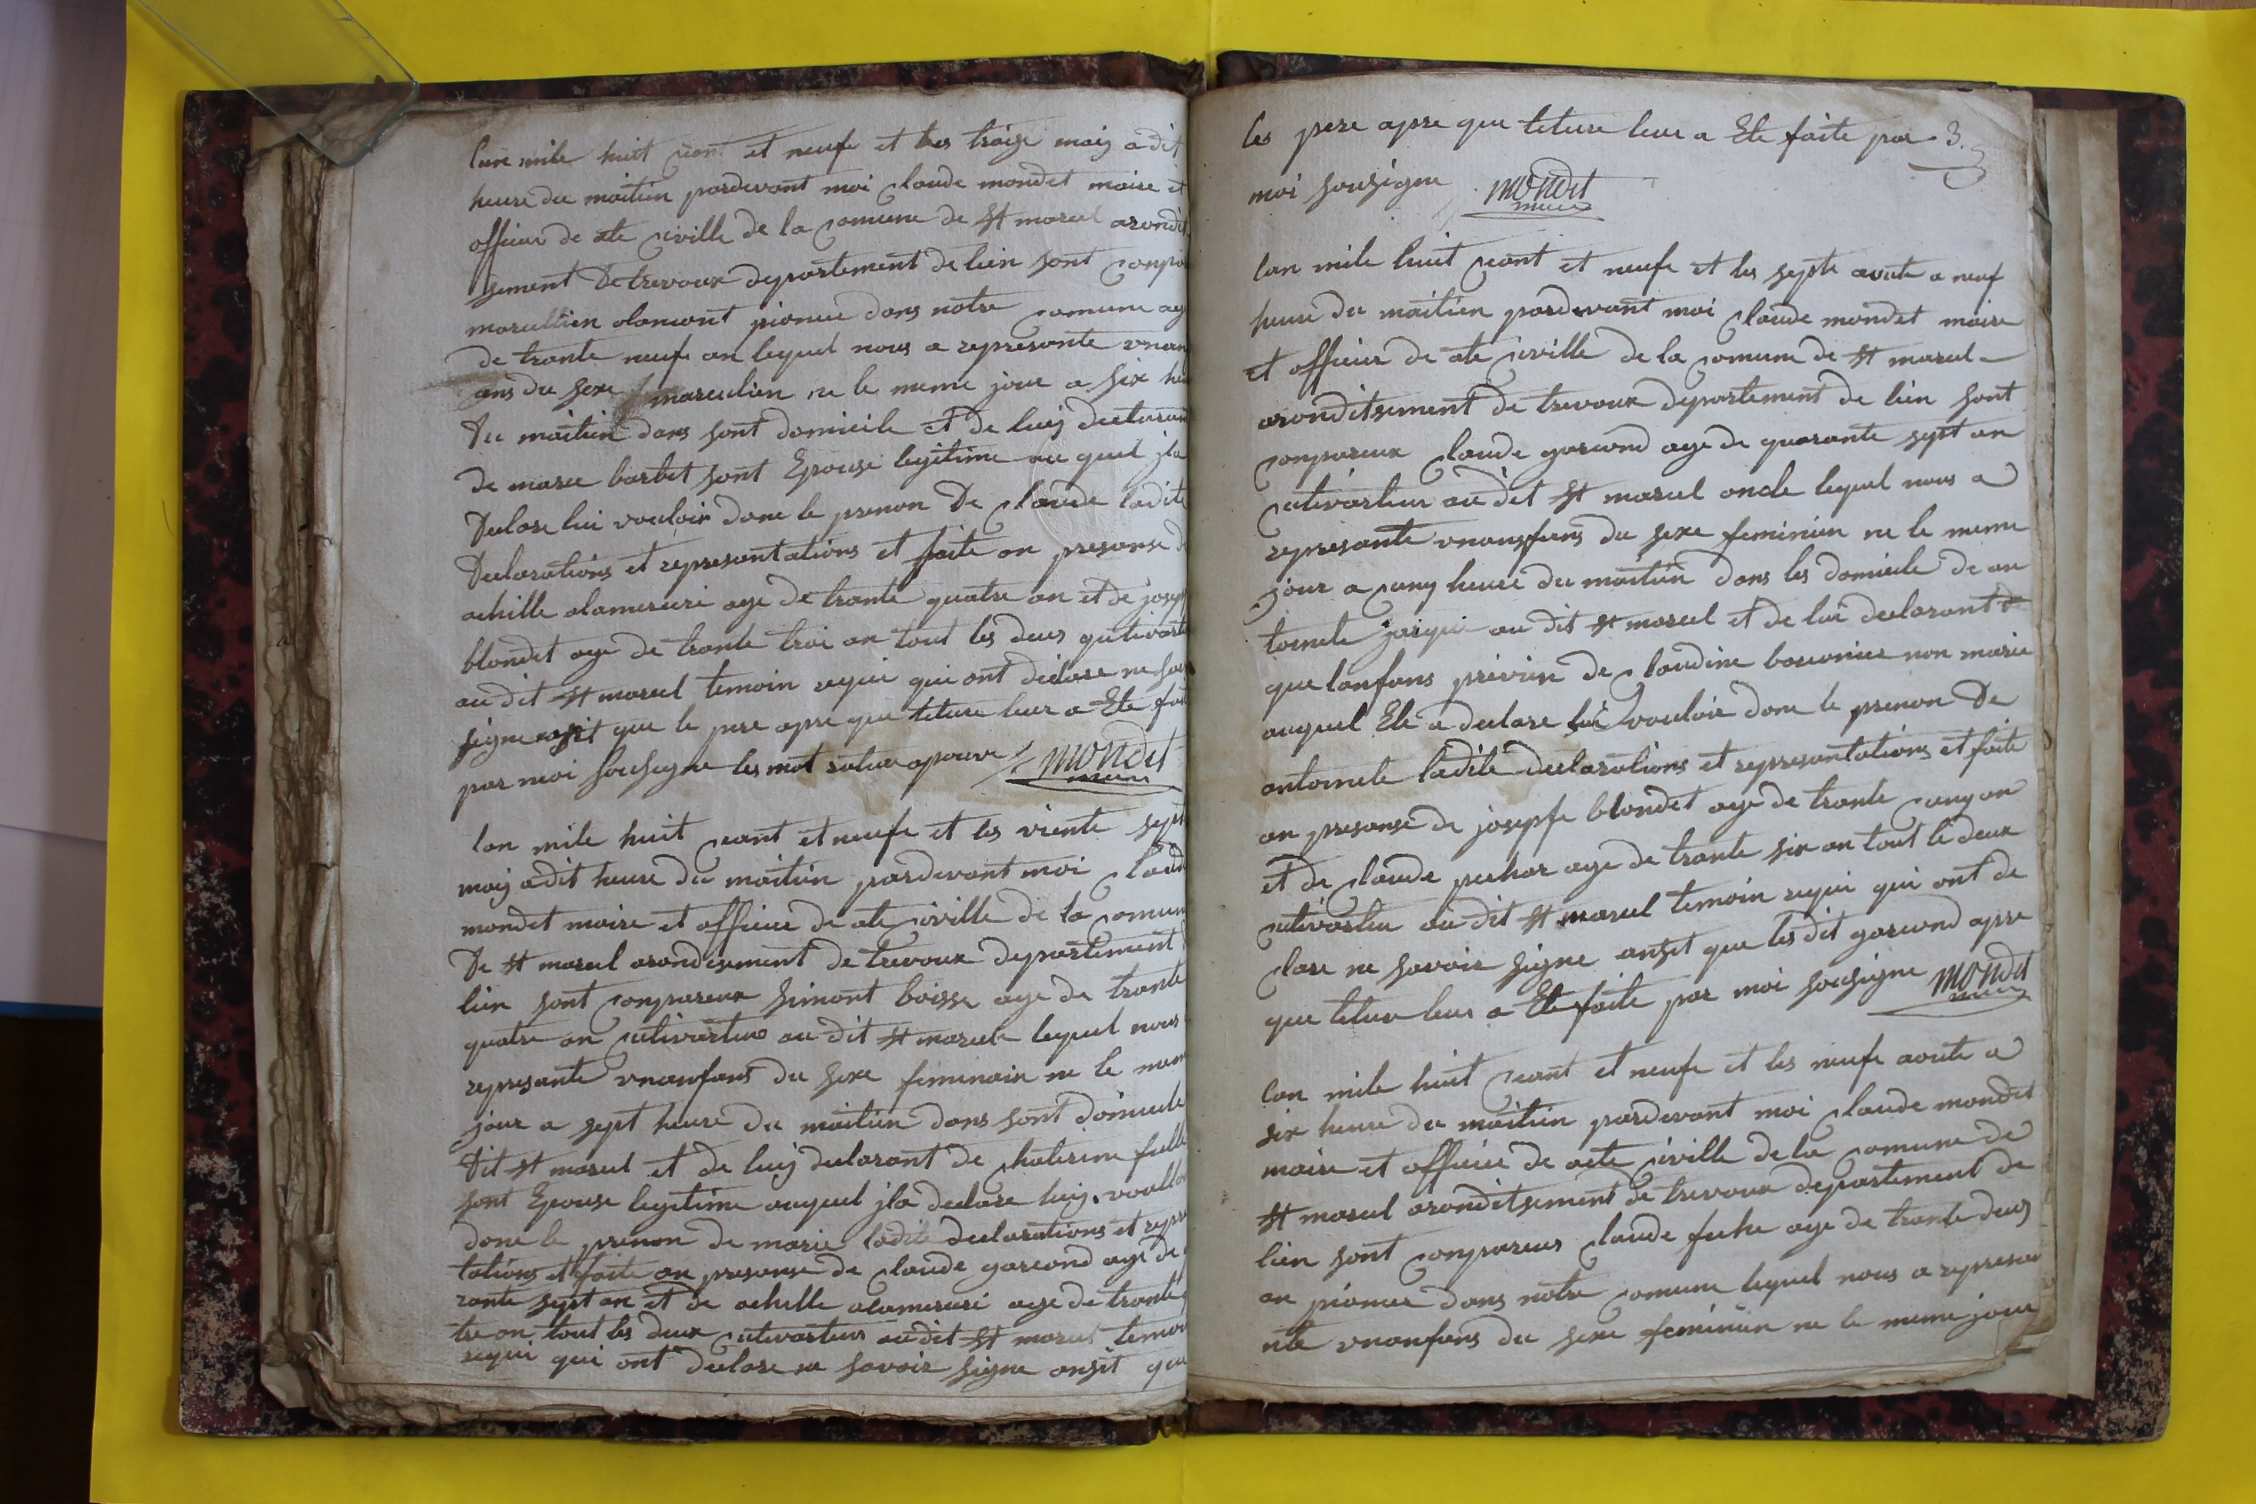 lan mile huit cent et neufe et les traize maiy a dit
heure du maitien pardevant moi Claude mondet maire et
officier de ate civille de la comune de St marcel arondit
sement De trevoux departement de lien sont conpa
marcellien alamont pionnie dans notre comune age
de trante neufe an lequel nous a represante vnan
ans du sexe masculien ne le meme jour a six he
Du maitien dans sont domicile et de luiy declaran
de marie barbet sont Epouse legitime au quel jla
Declare lui vouloir done le prenon De Claude ladite
Declarations et represantations et faite an presanse d
achille alamerceri age de trante quatre an et de josep
blondet age de trante troi an tout les deus qutivart
au dit St marcel temoin requi qui ont declare ne sav
signe ansit que le pere apre que leture leur a Ete fai
par moi Sousigne les mot rature aprouve mondet
maire
lan mile huit cent et neufe et les viente sept
maiy a dit heure du maitien pardevant moi Claud
mondet maire et officier de ate civille de la comun
De St marcel arondisement de trevoux departement
lien sont conpareux Simont boisse age de trante
quatre an cutivarteur au dit St marcele lequel nous
represante vnanfans du sexe feminain ne le mem
jour a sept heure du maitien dans sont domicile
Dit St marcel et de luiy declarant de Chaterine felle
sont Epouse legitime auquel jla declare luiy voullo
done le prenon de marie ladite declarations et repre
tations et faite an presanse de Claude garcond age de
rante sept an et de achille alamerceri age de trante
tre an tout les deux cutivarteur au dit St marcel temoi
requi qui ont declare ne savoir signe ansit que
les pere apre que leture leur a Ete faite par 3.
moi sousigne mondet
maire
lan mile huit cent et neufe et les septe aoute a neuf
heure du maitien pardevant moi Claude mondet maire
et officier de ate civille de la comune de St marcel
aronditsement de trevoux departement de lien sont
conpareux Claude garcond age de quarante sept an
cutivarteur au dit St marcel oncle lequel nous a
represante vnansfans du sexe feminien ne le meme
jour a cinq heure du maitien dans les domicile de an
toinete au dit St marcel et de lui declarant
que lanfans previen de Claudine non marie
auquel Ele a declare lui vouloir done le prenon De
antoinete ladite declarations et represantations et faite
an presanse de josepfe blondet age de trante canq an
et de Claude pechar age de trante six an tout le deux
cutivarteu au dit St marcel temoin requi qui ont de
Clare ne savoir signe ansit que les dit garcond apre
que leture leur a Ete faite par moi sousigne mondet
maire
lan mile huit cent et neufe et les neufe aoute a
six heure du maitien pardevant moi Claude mondet
maire et officier de acte civille de la comune de
St marcel aronditsement de trevoux departement de
lien sont conpareus Claude feche age de trante deus
an pionnie dans notre comune lequel nous a represan
nte vnanfans du sexe feminien ne le meme jour